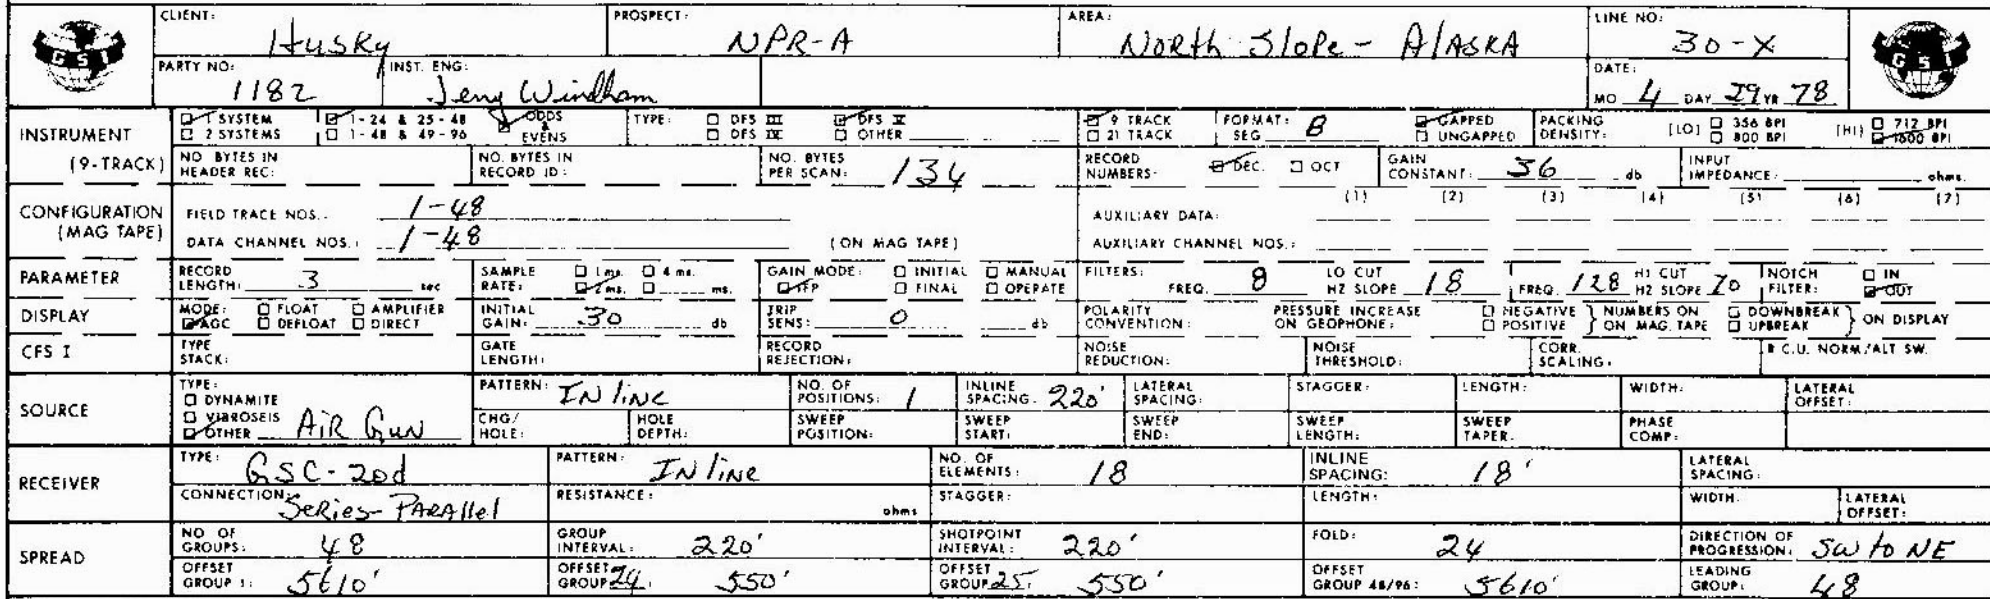 GSI CLIENT: Husky PROSPECT: NPR-A AREA: North Slope - Alaska LINE NO: 30-X GSI
PARTY NO: 1182 INST. ENG: Jerry Windham DATE: MO 4 DAY 29 YR 78
INSTRUMENT (9-TRACK)
1 SYSTEM 1-24 & 25-48 ODDS & EVENS TYPE: DFS III DFS V 9 TRACK FORMAT: SEG B GAPPED PACKING DENSITY: [LO] 356 BPI [HI] 712 BPI
2 SYSTEMS 1-48 & 49-96 DFS IV OTHER 21 TRACK UNGAPPED 800 BPI 1600 BPI
NO BYTES IN HEADER REC: NO. BYTES IN RECORD ID: NO. BYTES PER SCAN: 134 RECORD NUMBERS: DEC. OCT GAIN CONSTANT: 36 db INPUT IMPEDANCE: ohms.
CONFIGURATION (MAG TAPE)
FIELD TRACE NOS.: 1-48 AUXILIARY DATA: (1) (2) (3) (4) (5) (6) (7)
DATA CHANNEL NOS.: 1-48 (ON MAG TAPE) AUXILIARY CHANNEL NOS.:
PARAMETER RECORD LENGTH: 3 sec SAMPLE RATE: 1 ms. 4 ms. 2 ms. ms. GAIN MODE: INITIAL MANUAL IFP FINAL OPERATE FILTERS: FREQ. 8 LO CUT HZ SLOPE 18 FREQ. 128 HI CUT HZ SLOPE 70 NOTCH FILTER: IN OUT
DISPLAY MODE: FLOAT AMPLIFIER AGC DEFLOAT DIRECT INITIAL GAIN: 30 db TRIP SENS: 0 db POLARITY CONVENTION: PRESSURE INCREASE ON GEOPHONE: NEGATIVE POSITIVE } NUMBERS ON MAG. TAPE DOWNBREAK UPBREAK } ON DISPLAY
CFS I TYPE STACK: GATE LENGTH: RECORD REJECTION: NOISE REDUCTION: NOISE THRESHOLD: CORR. SCALING: R.C.U. NORM/ALT SW.
SOURCE TYPE: DYNAMITE VIBROSEIS OTHER Air Gun PATTERN: Inline NO. OF POSITIONS: 1 INLINE SPACING: 220' LATERAL SPACING: STAGGER: LENGTH: WIDTH: LATERAL OFFSET:
CHG/HOLE: HOLE DEPTH: SWEEP POSITION: SWEEP START: SWEEP END: SWEEP LENGTH: SWEEP TAPER. PHASE COMP:
RECEIVER TYPE: GSC-20d PATTERN: Inline NO. OF ELEMENTS: 18 INLINE SPACING: 18' LATERAL SPACING:
CONNECTION: Series-Parallel RESISTANCE: ohms STAGGER: LENGTH: WIDTH. LATERAL OFFSET:
SPREAD NO OF GROUPS: 48 GROUP INTERVAL: 220' SHOTPOINT INTERVAL: 220' FOLD: 24 DIRECTION OF PROGRESSION: SW to NE
OFFSET GROUP 1: 5610' OFFSET GROUP 24: 550' OFFSET GROUP 25: 550' OFFSET GROUP 48/96: 5610' LEADING GROUP: 48